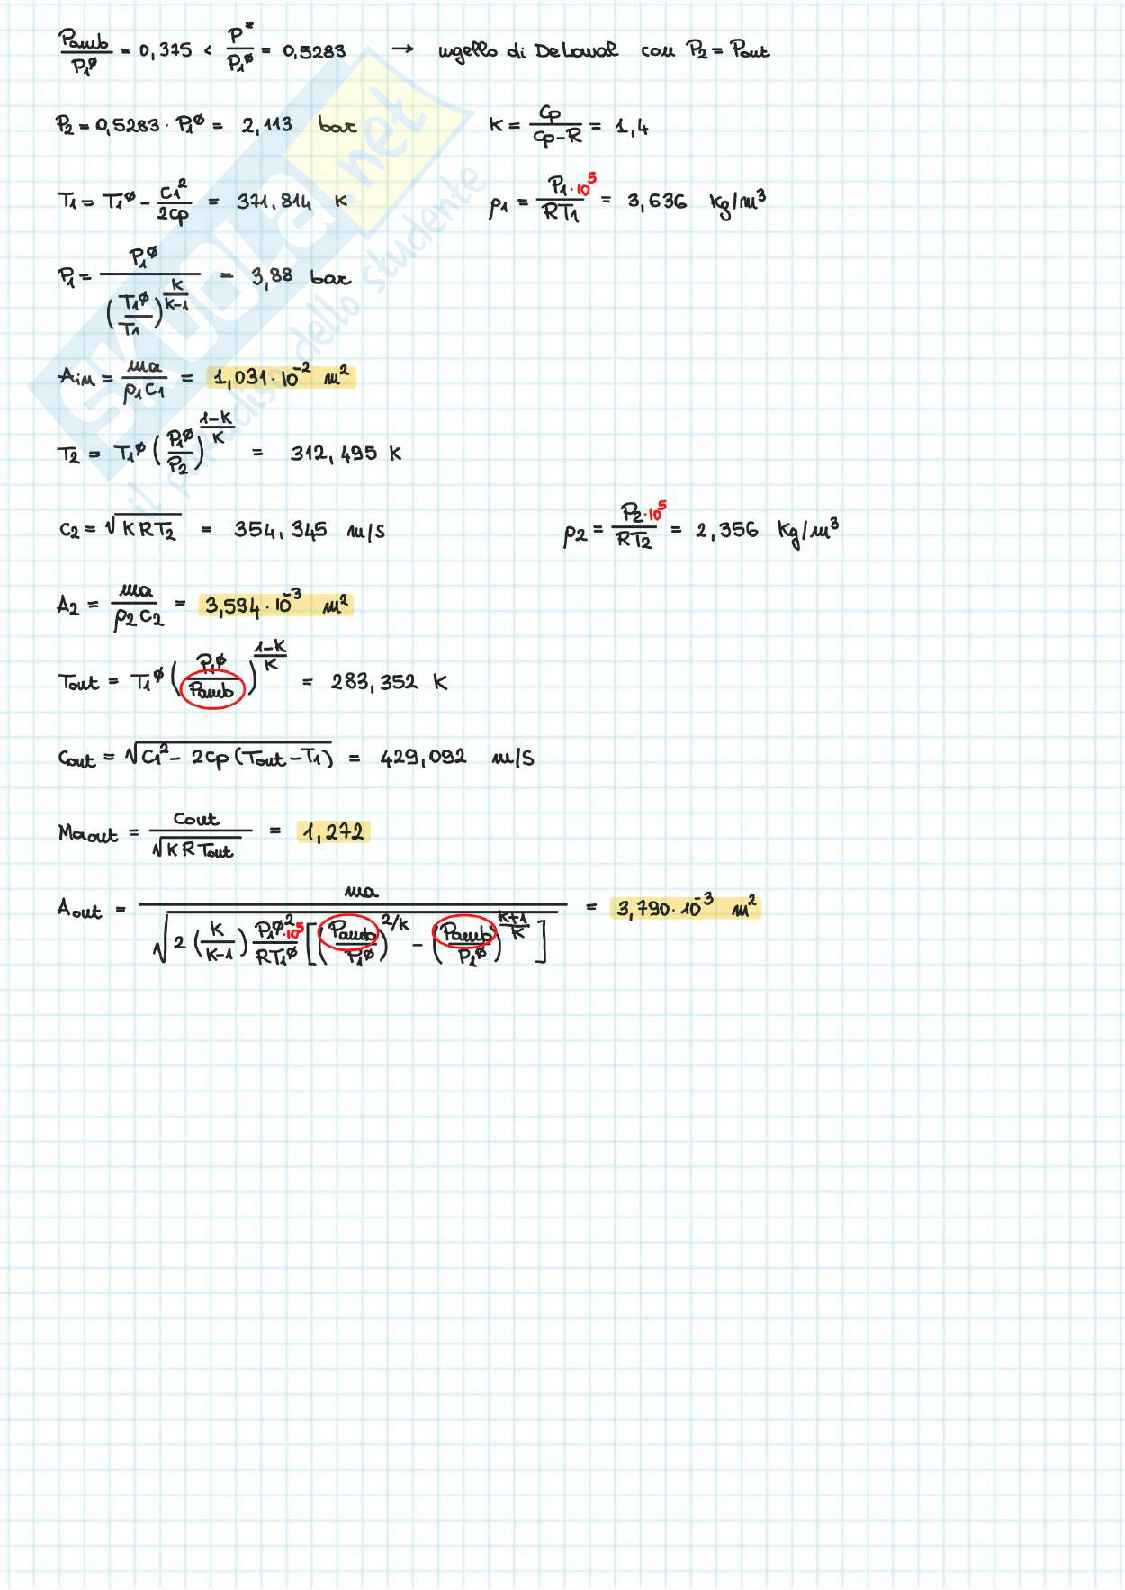 Pamb/P1ø = 0,375 < P*/P1ø = 0,5283 → ugello di DeLaval con P2 = Pout
P2 = 0,5283 · P1ø = 2,113 bar K = Cp/(Cp-R) = 1,4
T1 = T1ø - C1²/2Cp = 371,814 K ρ1 = P1·10⁵/RT1 = 3,636 Kg/m³
P1 = P1ø/(T1ø/T1)^(K/(K-1)) = 3,88 bar
Ain = ma/ρ1C1 = 1,031·10⁻² m²
T2 = T1ø (P1ø/P2)^((1-K)/K) = 312,495 K
C2 = √(KRT2) = 354,345 m/s ρ2 = P2·10⁵/RT2 = 2,356 Kg/m³
A2 = ma/ρ2C2 = 3,594·10⁻³ m²
Tout = T1ø (P1ø/Pamb)^((1-K)/K) = 283,352 K
Cout = √(C1² - 2Cp (Tout - T1)) = 429,092 m/s
Maout = Cout/√(KRTout) = 1,272
Aout = ma/√(2 (K/(K-1)) P1ø²·10⁵/RT1ø [(Pamb/P1ø)^(2/K) - (Pamb/P1ø)^((K+1)/K)]) = 3,790·10⁻³ m²
SKUOLA.net
il paradiso dello studente